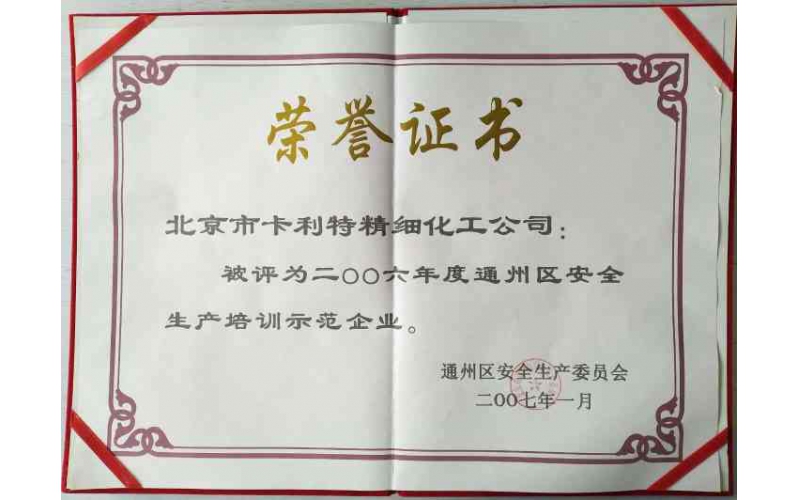 荣誉证书
北京市卡利特精细化工公司：
被评为二〇〇六年度通州区安全
生产培训示范企业。
通州区安全生产委员会
二〇〇七年一月